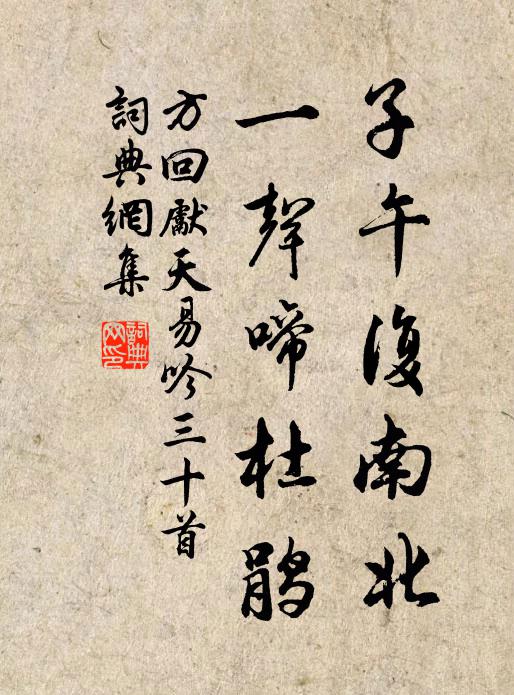 子午復南北
一聲啼杜鵑
方回獻天易吟三十首
詞典網集
詞典
网印